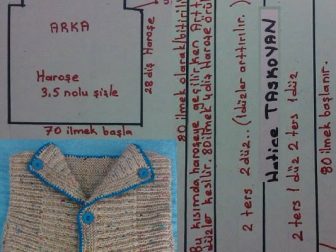 ARKA
Haroşe
3.5 nolu şişle
28 diş Haroşe
70 ilmek başla
80 ilmek olarak bitirilir
Bu kısımda haroşeye geçilirken Artt
düzler kesilir. 80 ilmek 4 diş Haroşe örül
2 ters 2 düz.. (1 düzler arttırılır.)
Hatice TAŞKOYAN
2 ters 1 düz 2 ters 1 düz
80 ilmek başlanır.